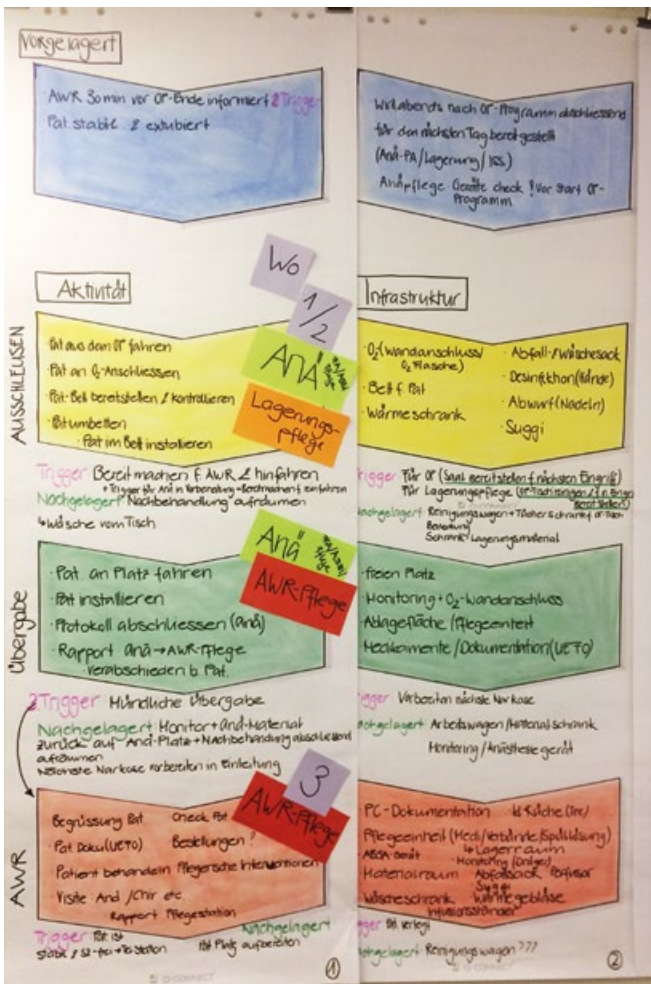 Vorgelagert
· AWR 30min vor OP-Ende informiert & Trigger
Pat. stabil & extubiert
Aktivität
Wo
1/2
AUSSCHLEUSEN
· Pat aus dem OP fahren
· Pat an O₂-Anschliessen
· Pat-Bett bereitstellen & kontrollieren
· Pat umbetten
· Pat im Bett installieren
Anä
Pflege
Lagerungs-
pflege
Trigger Bereit machen f. AWR & hinfahren
Nachgelagert Nachbehandlung aufräumen
↳ Wäsche vom Tisch
Übergabe
· Pat. an Platz fahren
· Pat installieren
· Protokoll abschliessen (Anä)
· Rapport Anä → AWR-Pflege
· Verabschieden b. Pat.
Anä
Pflege
AWR-Pflege
Trigger Mündliche Übergabe
Nachgelagert Monitor + Anä-Material
zurück auf Anä-Platz + Nachbehandlung abschliessend
aufräumen
Nächste Narkose vorbereiten in Einleitung
AWR
· Begrüssung Pat
Check Pat
· Pat Doku (UETO)
Bestellungen?
· Patient behandeln Pflegerische Interventionen
· Visite Anä / Chir etc.
Rapport Pflegestation
3
AWR-Pflege
Trigger Pat ist
stabil &
Nachgelagert
Pat Platz aufbereiten
1
Wird abends nach OP-Programm abschliessend
für den nächsten Tag bereitgestellt
(Anä-PA / Lagerung / IGS)
Anäpflege Geräte check ! Vor Start OP-
Programm
Infrastruktur
· O₂ (Wandanschluss /
O₂ Flasche)
· Bett f. Pat
· Wärmeschrank
· Abfall-/Wäschesack
· Desinfektion (Hände)
· Abwurf (Nadeln)
· Suggi
Trigger Für OP (Saal bereitstellen f. nächsten Eingriff)
Für Lagerungspflege
Nachgelagert Reinigungswagen +
Schrank Lagerungsmaterial
· freien Platz
· Monitoring + O₂-Wandanschluss
· Ablagefläche / Pflegeeinheit
· Medikamente / Dokumentation (UETO)
Trigger Vorbereiten nächste Narkose
Nachgelagert Arbeitswagen / Materialschrank
Monitoring / Anästhesiegerät
· PC-Dokumentation
kl. Küche (Tee/
· Pflegeeinheit (Medi / Verbände / Spüllösung)
↳ Lagerraum
Monitoring
Materialraum Abfallsack Perfusor
Suggi
Wäscheschrank Wärmegebläse
Infusionsständer
Trigger Pat verlegt
Nachgelagert Reinigungswagen???
2